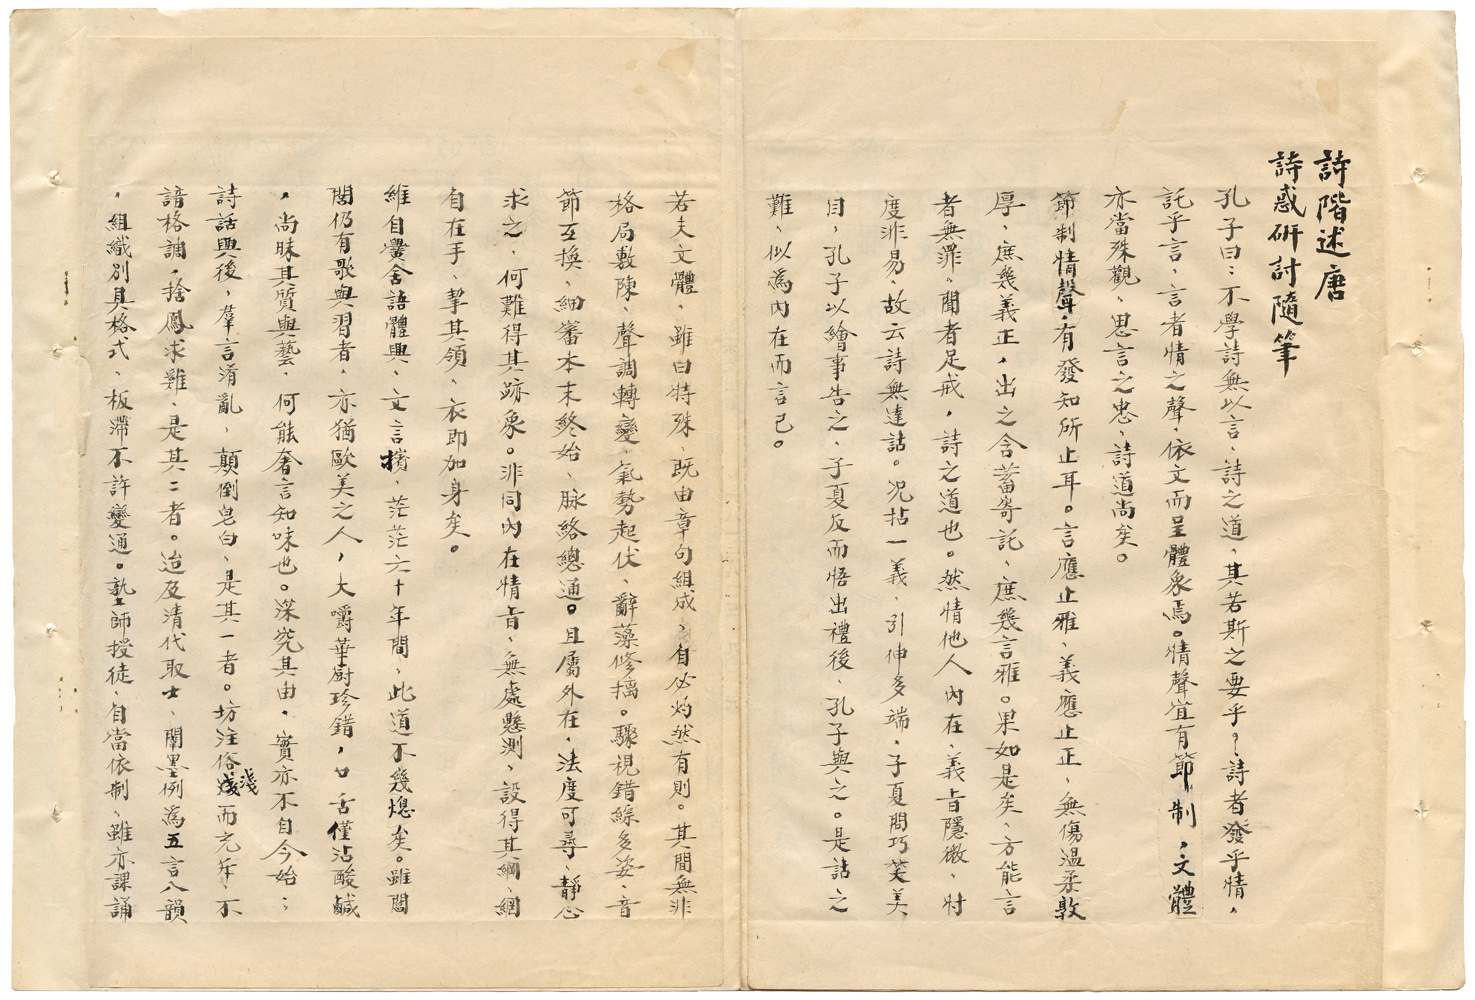 詩階述唐
詩惑研討隨筆
孔子曰：不學詩無以言、詩之道、其若斯之要乎。詩者發乎情，
託乎言，言者情之聲，依文而呈體象焉。情聲宜有節制，文體
亦當殊觀、思言之忠、詩道尚矣。
節制情聲，有發知所止耳。言應止雅、義應止正、無傷溫柔敦
厚、庶幾義正，出之含蓄寄託、庶幾言雅。果如是矣、方能言
者無罪、聞者足戒，詩之道也。然情他人內在、義旨隱微、忖
度非易、故云詩無達詁。況拈一義、引伸多端、子夏問巧笑美
目，孔子以繪事告之、子夏反而悟出禮後、孔子與之。是詁之
難、似為內在而言已。
若夫文體、雖曰特殊、既由章句組成、自必灼然有則。其間無非
格局敷陳、聲調轉變、氣勢起伏、辭藻修摛。驟視錯綜多姿、音
節互換、細審本末終始、脉絡總通。且屬外在、法度可尋、靜心
求之、何難得其跡象。非同內在情旨、無處懸測、設得其綱、綱
自在手、挈其領、衣即加身矣。
維自黌舍語體興、文言擯、茫茫六十年間、此道不幾熄矣。雖間
閭仍有歌與習者、亦猶歐美之人，大嚼華厨珍錯，口舌僅沾酸鹹
，尚昧其質與藝、何能奢言知味也。深究其由、實亦不自今始；
詩話興後，羣言淆亂，顛倒皂白、是其一者。坊注俗淺而充斥、不
諳格調，捨鳳求雞、是其二者。迨及清代取士、闈墨例為五言八韻
，組織別具格式、板滯不許變通。塾師授徒、自當依制、雖亦課誦